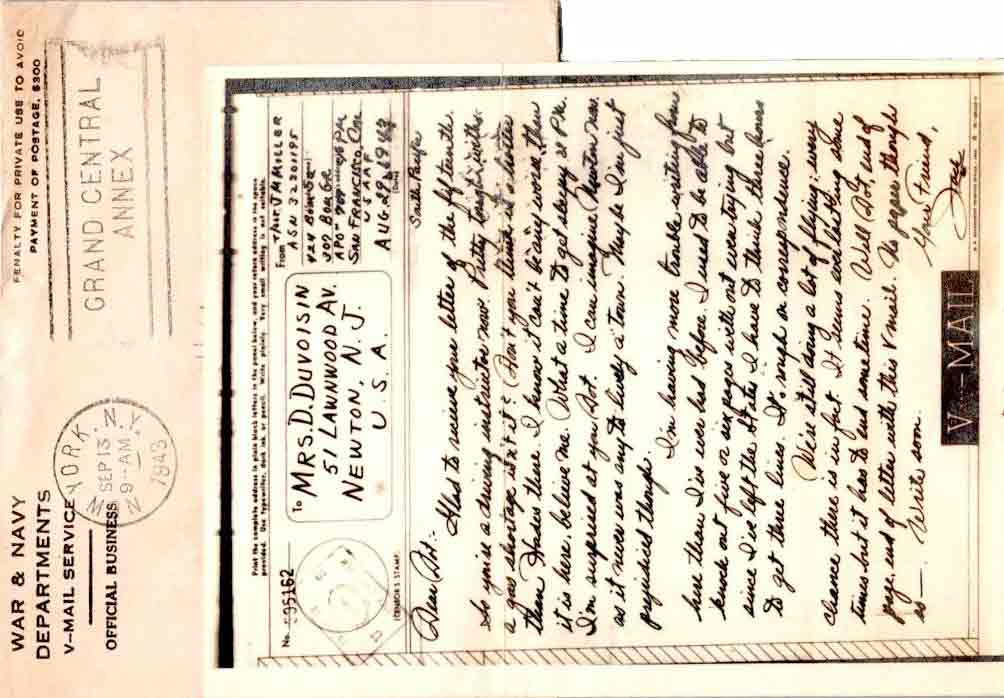 WAR & NAVY
DEPARTMENTS
V–MAIL SERVICE
OFFICIAL BUSINESS
PENALTY FOR PRIVATE USE TO AVOID
PAYMENT OF POSTAGE, $300
YORK, N.Y.
SEP 13
9-AM
1943
GRAND CENTRAL
ANNEX
Print the complete address in plain block letters in the panel below, and your return address in the space
provided. Use typewriter, dark ink, or pencil. Write plainly. Very small writing is not suitable.
No.
(CENSOR'S STAMP)
To
MRS. D. DUVOISIN
51 LAWNWOOD AV.
NEWTON, N. J.
U. S. A.
From
T/SGT J MMILLER
ASN 32301195
424 BOMB SQ
307 BOM GR
APO 709
SAN FRANCISCO, CAL
USAAF
AUG 29 1943
(Date)
South Pacific
Dear Dot:-
Glad to receive your letter of the fifteenth.
So you're a driving instructor now. Pretty tough with
a gas shortage isn't it? Don't you think it's hotter
than Hades there. I know it can't be any worse then
it is here, believe me. What a time to get sleepy at PM.
I'm surprised at you Dot. I can imagine Newton now,
as it never was any to lively a town. Maybe I'm just
prejudiced though.
I'm having more trouble writing from
here than I've ever had before. I used to be able to
knock out five or six pages with out even trying but
since I've left the States I have to think three hours
to get three lines. It's rough on correspondence.
We're still doing a lot of flying; every
chance there is in fact. It seems everlasting some
times but it has to end sometime. Well Dot, end of
page, end of letter with this V mail. No pages though
so — Write soon.
Your Friend,
V–MAIL